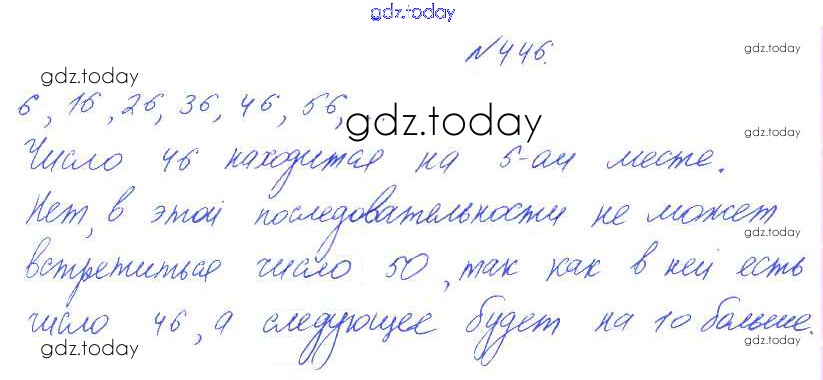 gdz.today
№446.
gdz.today
gdz.today
6, 16, 26, 36, 46, 56,
gdz.today
gdz.today
Число 46 находится на 5-ом месте.
Нет, в этой последовательности не может
gdz.today
встретиться число 50, так как в ней есть
число 46, а следующее будет на 10 больше.
gdz.today
gdz.today